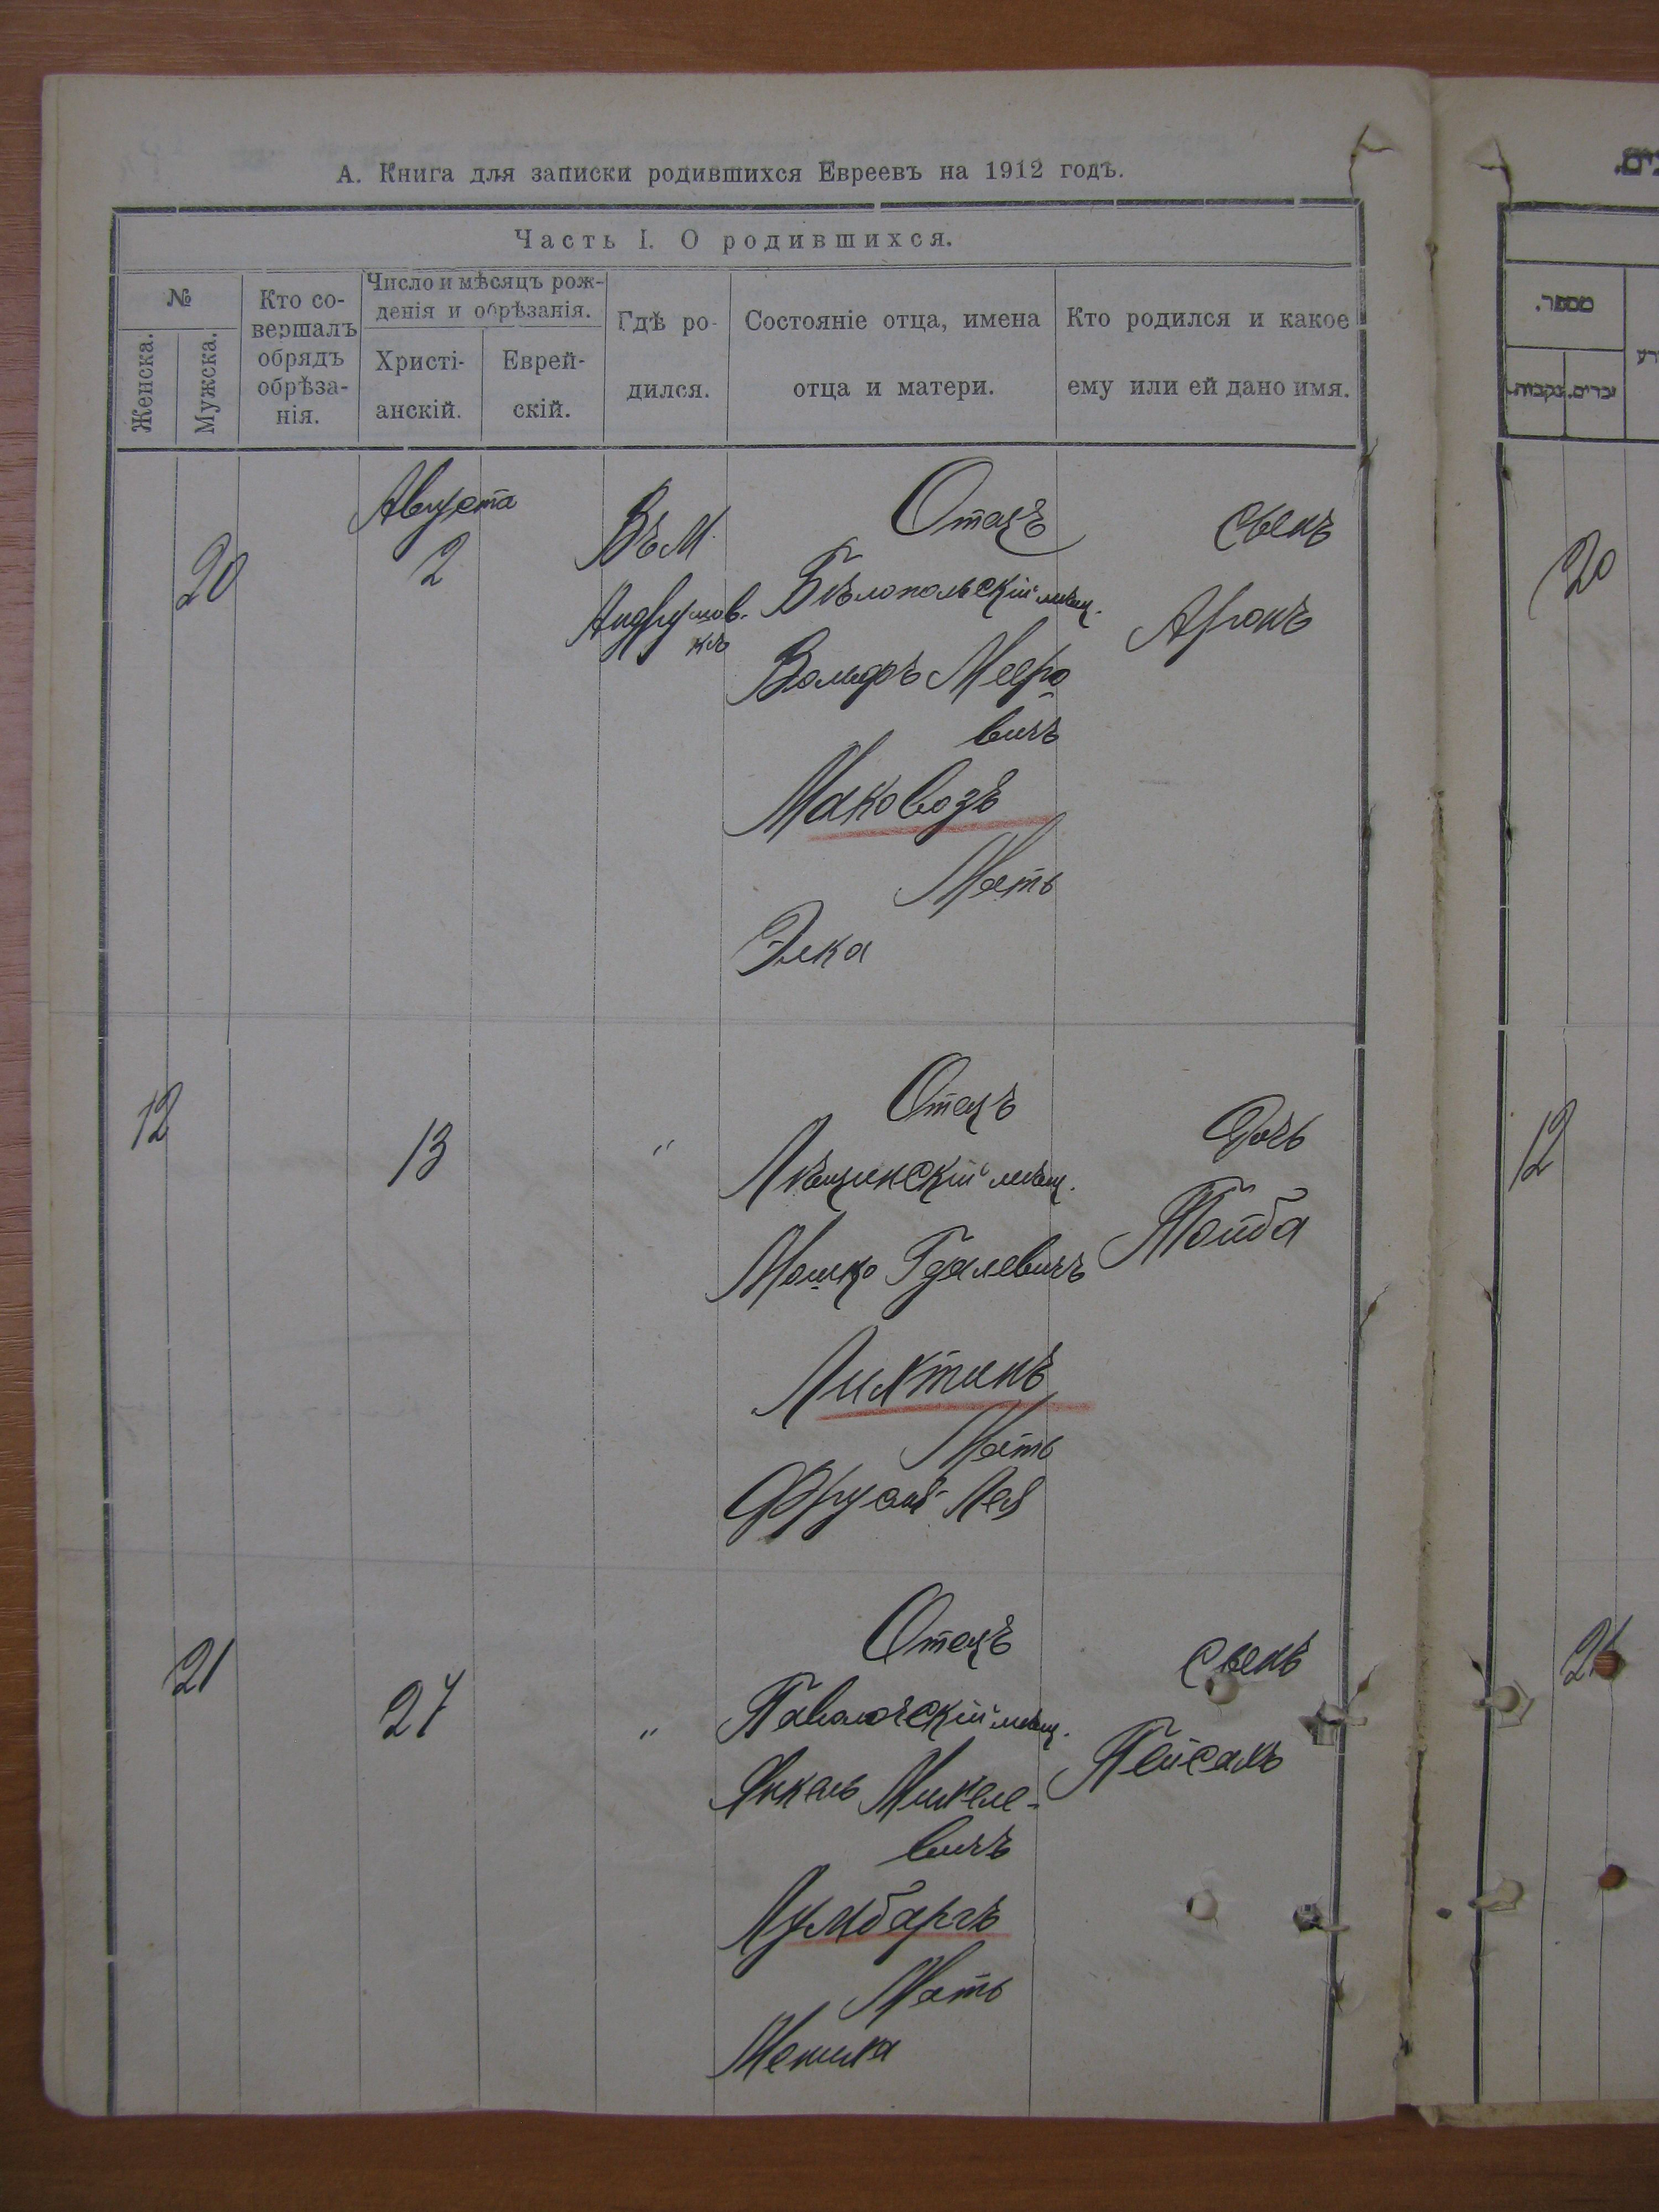 А. Книга для записки родившихся Евреевъ на 1912 годъ.
Часть I. О родившихся.
№
Женска.
Мужска.
Кто со-
вершалъ
обрядъ
обрѣза-
нія.
Число и мѣсяцъ рож-
денія и обрѣзанія.
Христі-
анскій.
Еврей-
скій.
Гдѣ ро-
дился.
Состояніе отца, имена
отца и матери.
Кто родился и какое
ему или ей дано имя.
20
Августа
2
Въ М.
Андрушов-
кѣ
Отецъ
Бѣлопольскій мѣщ.
Вольфъ Мееро
вичъ
Маковозъ
Мать
Элка
сынъ
Аронъ
12
13
"
Отецъ
мѣщ.
Мошко Гдалевичъ
Лихтикъ
Мать
Лея
Дочь
Тойба
21
27
"
Отецъ
Паволочскій мѣщ.
Янкель Михеле-
вичъ
Мать
сынъ
Пейсахъ
מספר.
זכרים.
נקבות.
20
12
21